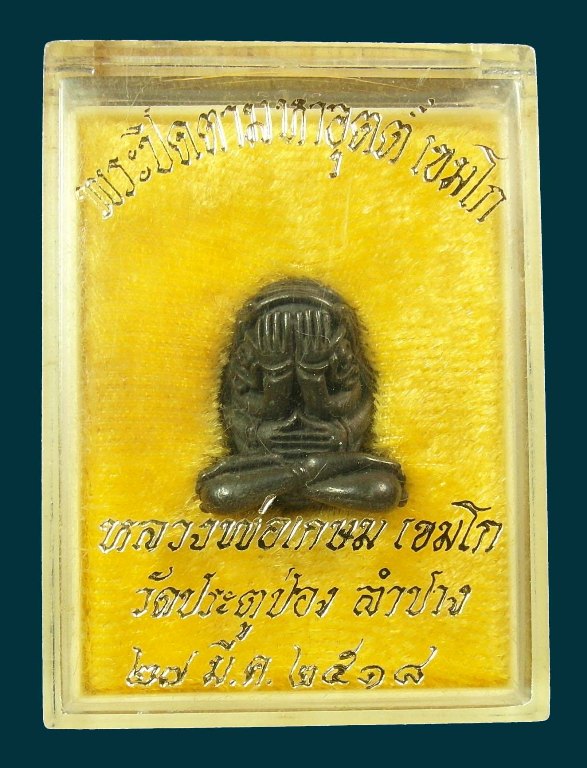 พระปิดตามหาอุตต์ เขมโก
หลวงพ่อเกษม เขมโก
วัดประตูป่อง ลำปาง
๒๗ มี.ค. ๒๕๑๘